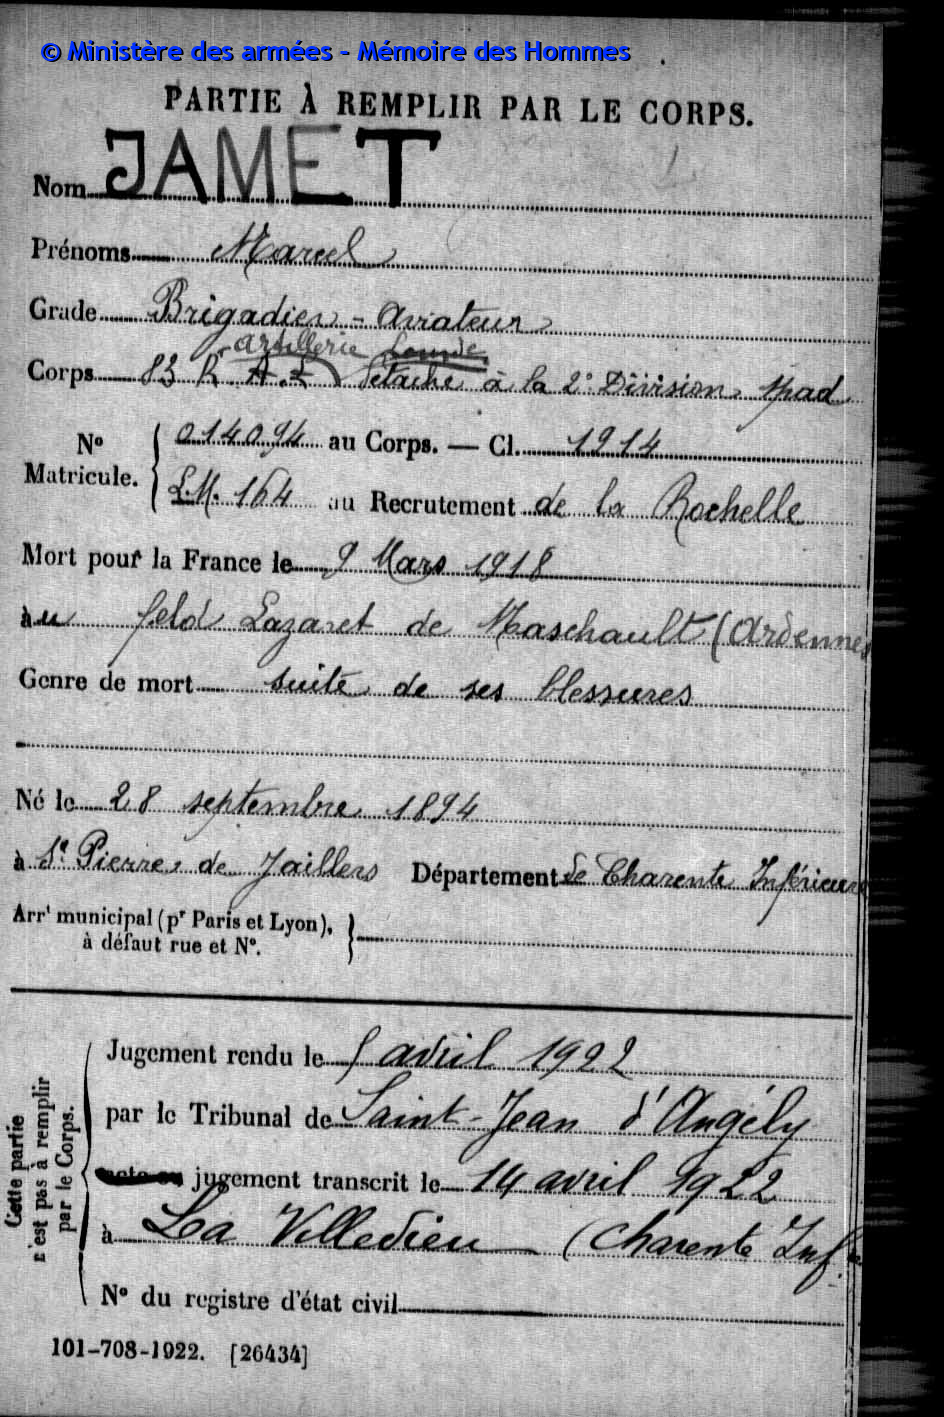 © Ministère des armées - Mémoire des Hommes
PARTIE À REMPLIR PAR LE CORPS.
Nom JAMET
Prénoms Marcel
Grade Brigadier - Aviateur
artillerie Lourde
Corps 83 R. A. L détaché à la 2e Division Spad
No Matricule. 014094 au Corps. — Cl. 1914
L.M. 164 au Recrutement de la Rochelle
Mort pour la France le 9 Mars 1918
au feld Lazaret de Maschault (Ardennes
Genre de mort suite de ses blessures
Né le 28 septembre 1894
à St Pierre de Jaillers Département de Charente Inférieure
Arrt municipal (pr Paris et Lyon),
à défaut rue et No.
Cette partie
n'est pas à remplir
par le Corps.
Jugement rendu le 5 avril 1922
par le Tribunal de Saint-Jean d'Angély
jugement transcrit le 14 avril 1922
à La Villedieu (Charente Inf.
No du registre d'état civil
101-708-1922. [26434]